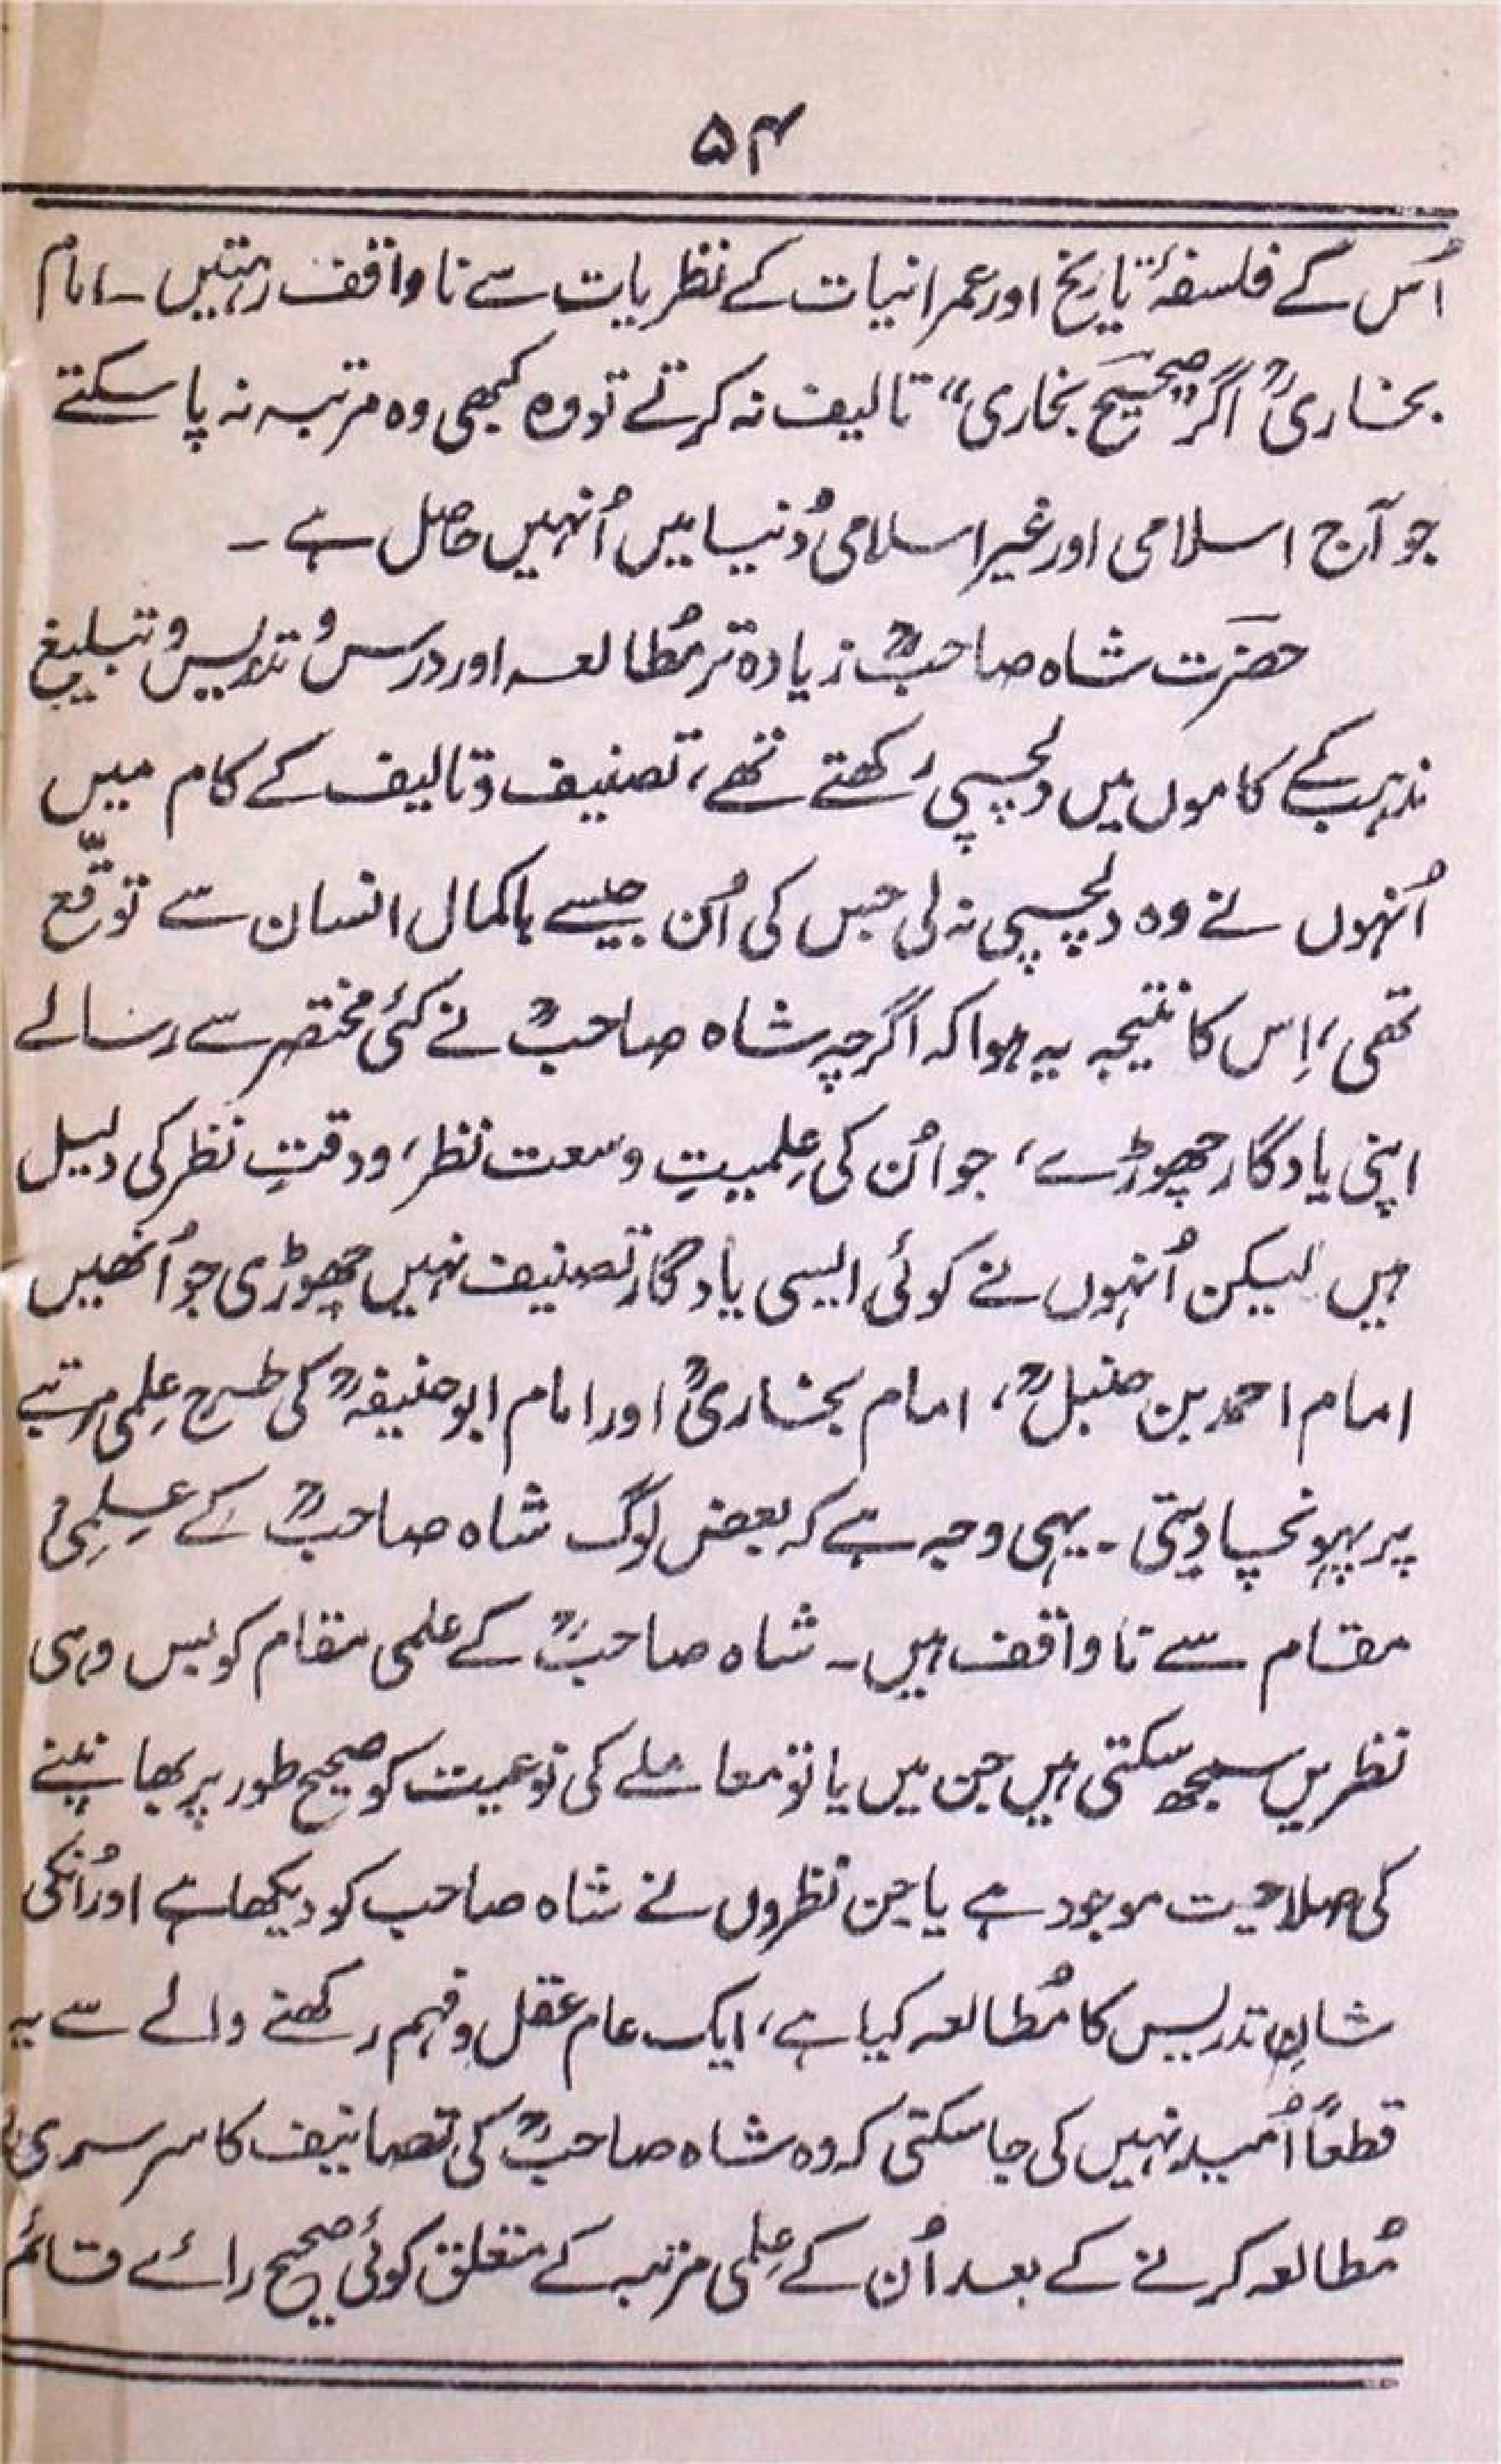 ۵۴
اُس کے فلسفۂ تاریخ اور عمرانیات کے نظریات سے ناواقف رہتیں ۔ امام
بخاریؒ اگر ”صحیح بخاری“ تالیف نہ کرتے تو وہ کبھی وہ مرتبہ نہ پا سکتے
جو آج اسلامی اور غیر اسلامی دُنیا میں اُنہیں حاصل ہے ۔
حضرت شاہ صاحبؒ زیادہ تر مُطالعہ اور درس و تدریس و تبلیغ
مذہب کے کاموں میں دلچسپی رکھتے تھے، تصنیف و تالیف کے کام میں
اُنہوں نے وہ دلچسپی نہ لی جس کی اُن جیسے باکمال انسان سے توقّع
تھی، اِس کا نتیجہ یہ ہوا کہ اگرچہ شاہ صاحبؒ نے کئی مختصر سے رسالے
اپنی یادگار چھوڑے، جو اُن کی عِلمیتِ وسعت نظر، ودقتِ نظر کی دلیل
ہیں لیکن اُنہوں نے کوئی ایسی یادگار تصنیف نہیں چھوڑی جو اُنھیں
امام احمد بن حنبلؒ، امام بخاریؒ اور امام ابوحنیفہؒ کی طرح عِلمی مرتبے
پر پہونچا دیتی ۔ یہی وجہ ہے کہ بعض لوگ شاہ صاحبؒ کے عِلمِی
مقام سے ناواقف ہیں ۔ شاہ صاحبؒ کے علمی مقام کو بس وہی
نظریں سمجھ سکتی ہیں جن میں یا تو معاملے کی نوعیت کو صحیح طور پر بھانپنے
کی صلاحیت موجود ہے یا جن نظروں نے شاہ صاحب کو دیکھا ہے اور اُنکی
شانِ تدریس کا مُطالعہ کیا ہے، ایک عام عقل و فہم رکھنے والے سے یہ
قطعاً اُمید نہیں کی جا سکتی کہ وہ شاہ صاحبؒ کی تصانیف کا سرسری
مُطالعہ کرنے کے بعد اُن کے عِلمی مرتبہ کے متعلق کوئی صحیح رائے قائم